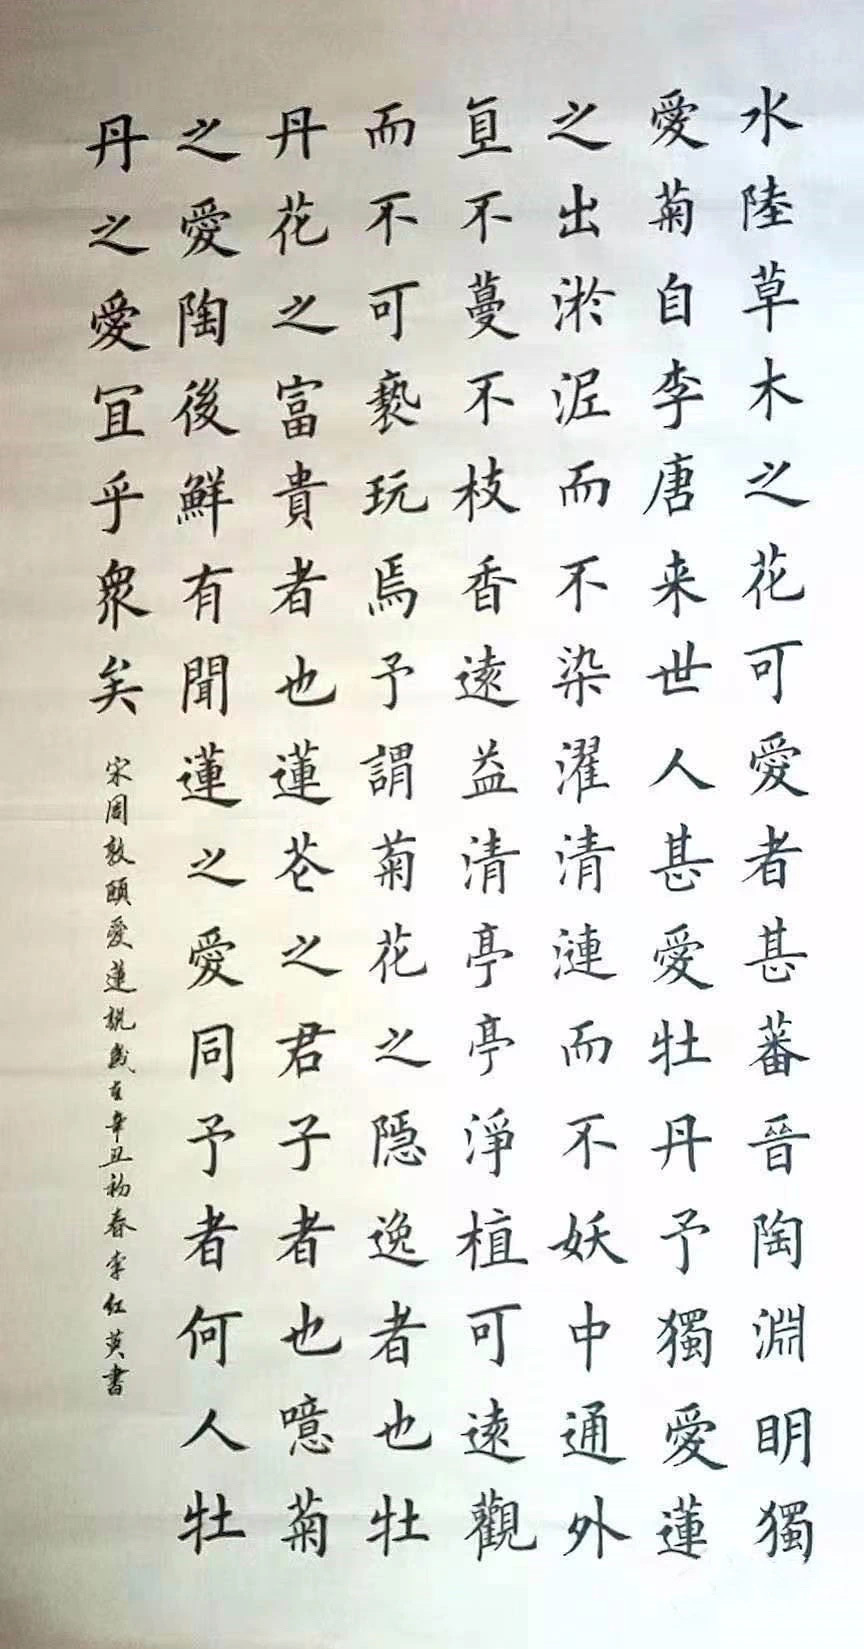 水陸草木之花可愛者甚蕃晉陶淵明獨
愛菊自李唐来世人甚愛牡丹予獨愛蓮
之出淤泥而不染濯清漣而不妖中通外
直不蔓不枝香遠益清亭亭淨植可遠觀
而不可褻玩焉予謂菊花之隱逸者也牡
丹花之富貴者也蓮花之君子者也噫菊
之愛陶後鮮有聞蓮之愛同予者何人牡
丹之愛宜乎眾矣
宋周敦頤愛蓮說歲在辛丑初春李红英書